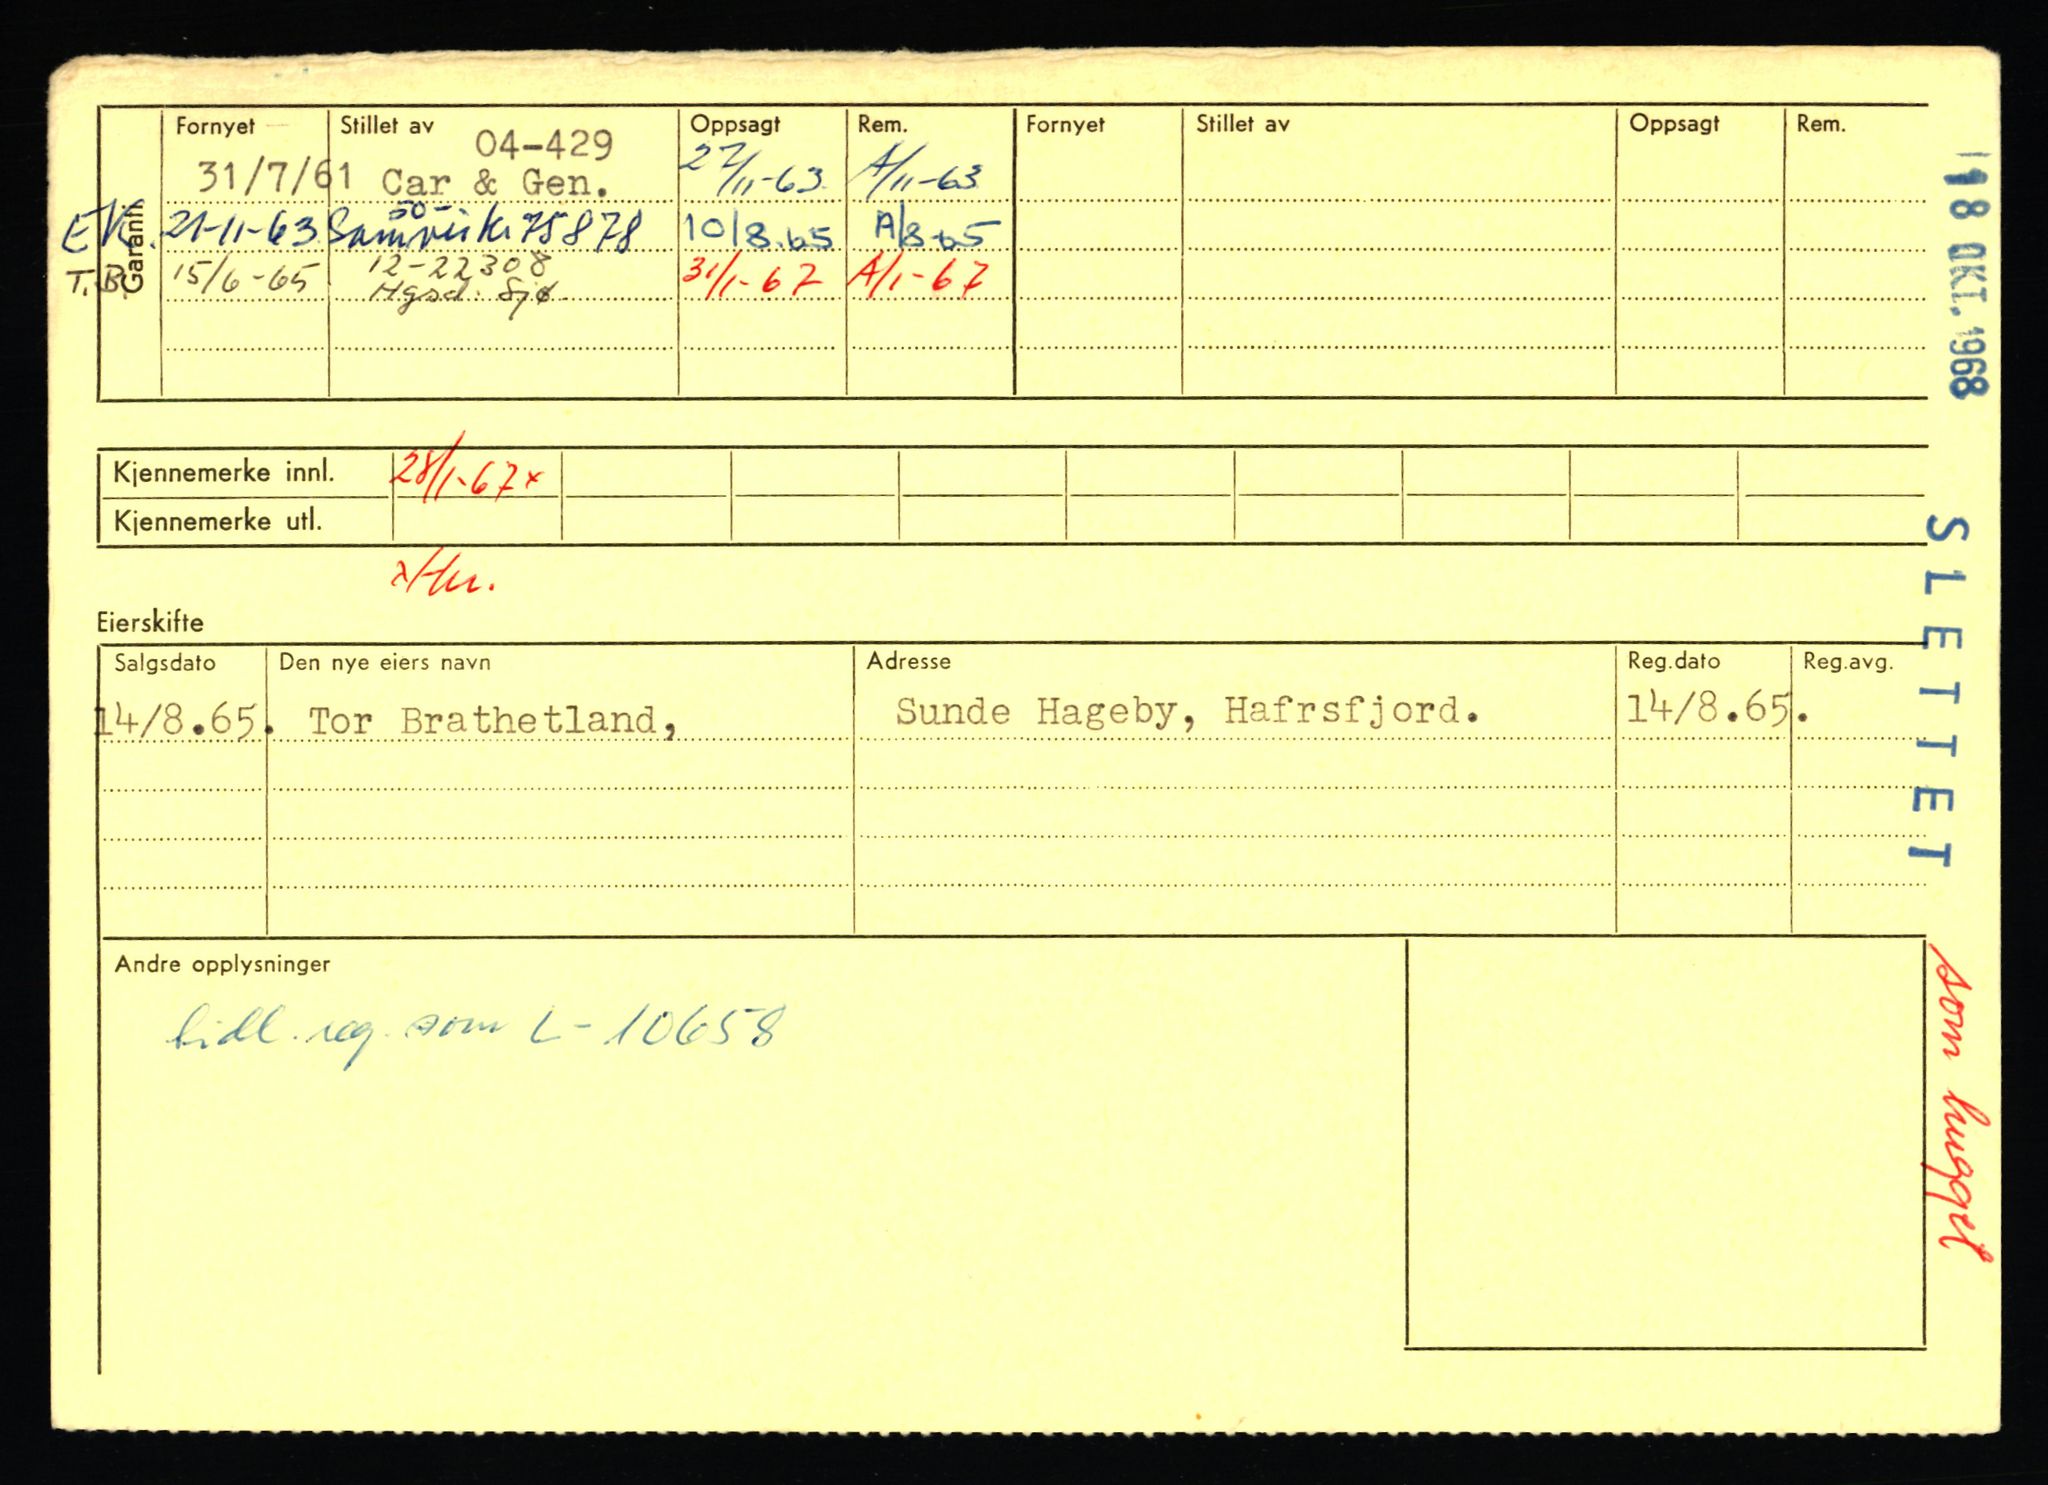 Garanti
Fornyet Stillet av Oppsagt Rem. Fornyet Stillet av Oppsagt Rem.
04-429
31/7/61 Car & Gen. 27/11-63 A/11-63
50-
EK. 21-11-63 Samvirke 75878 10/8.65 A/8-65
T.B. 15/6-65 12-22308 31/1-67 A/1-67
Hgsd. Sjø
Kjennemerke innl. 28/1-67 x
Kjennemerke utl.
Eierskifte
Salgsdato Den nye eiers navn Adresse Reg.dato Reg.avg.
14/8.65. Tor Brathetland, Sunde Hageby, Hafrsfjord. 14/8.65.
Andre opplysninger
tidl. reg. som L-10658
18 OKT. 1968
SLETTET
som hugget